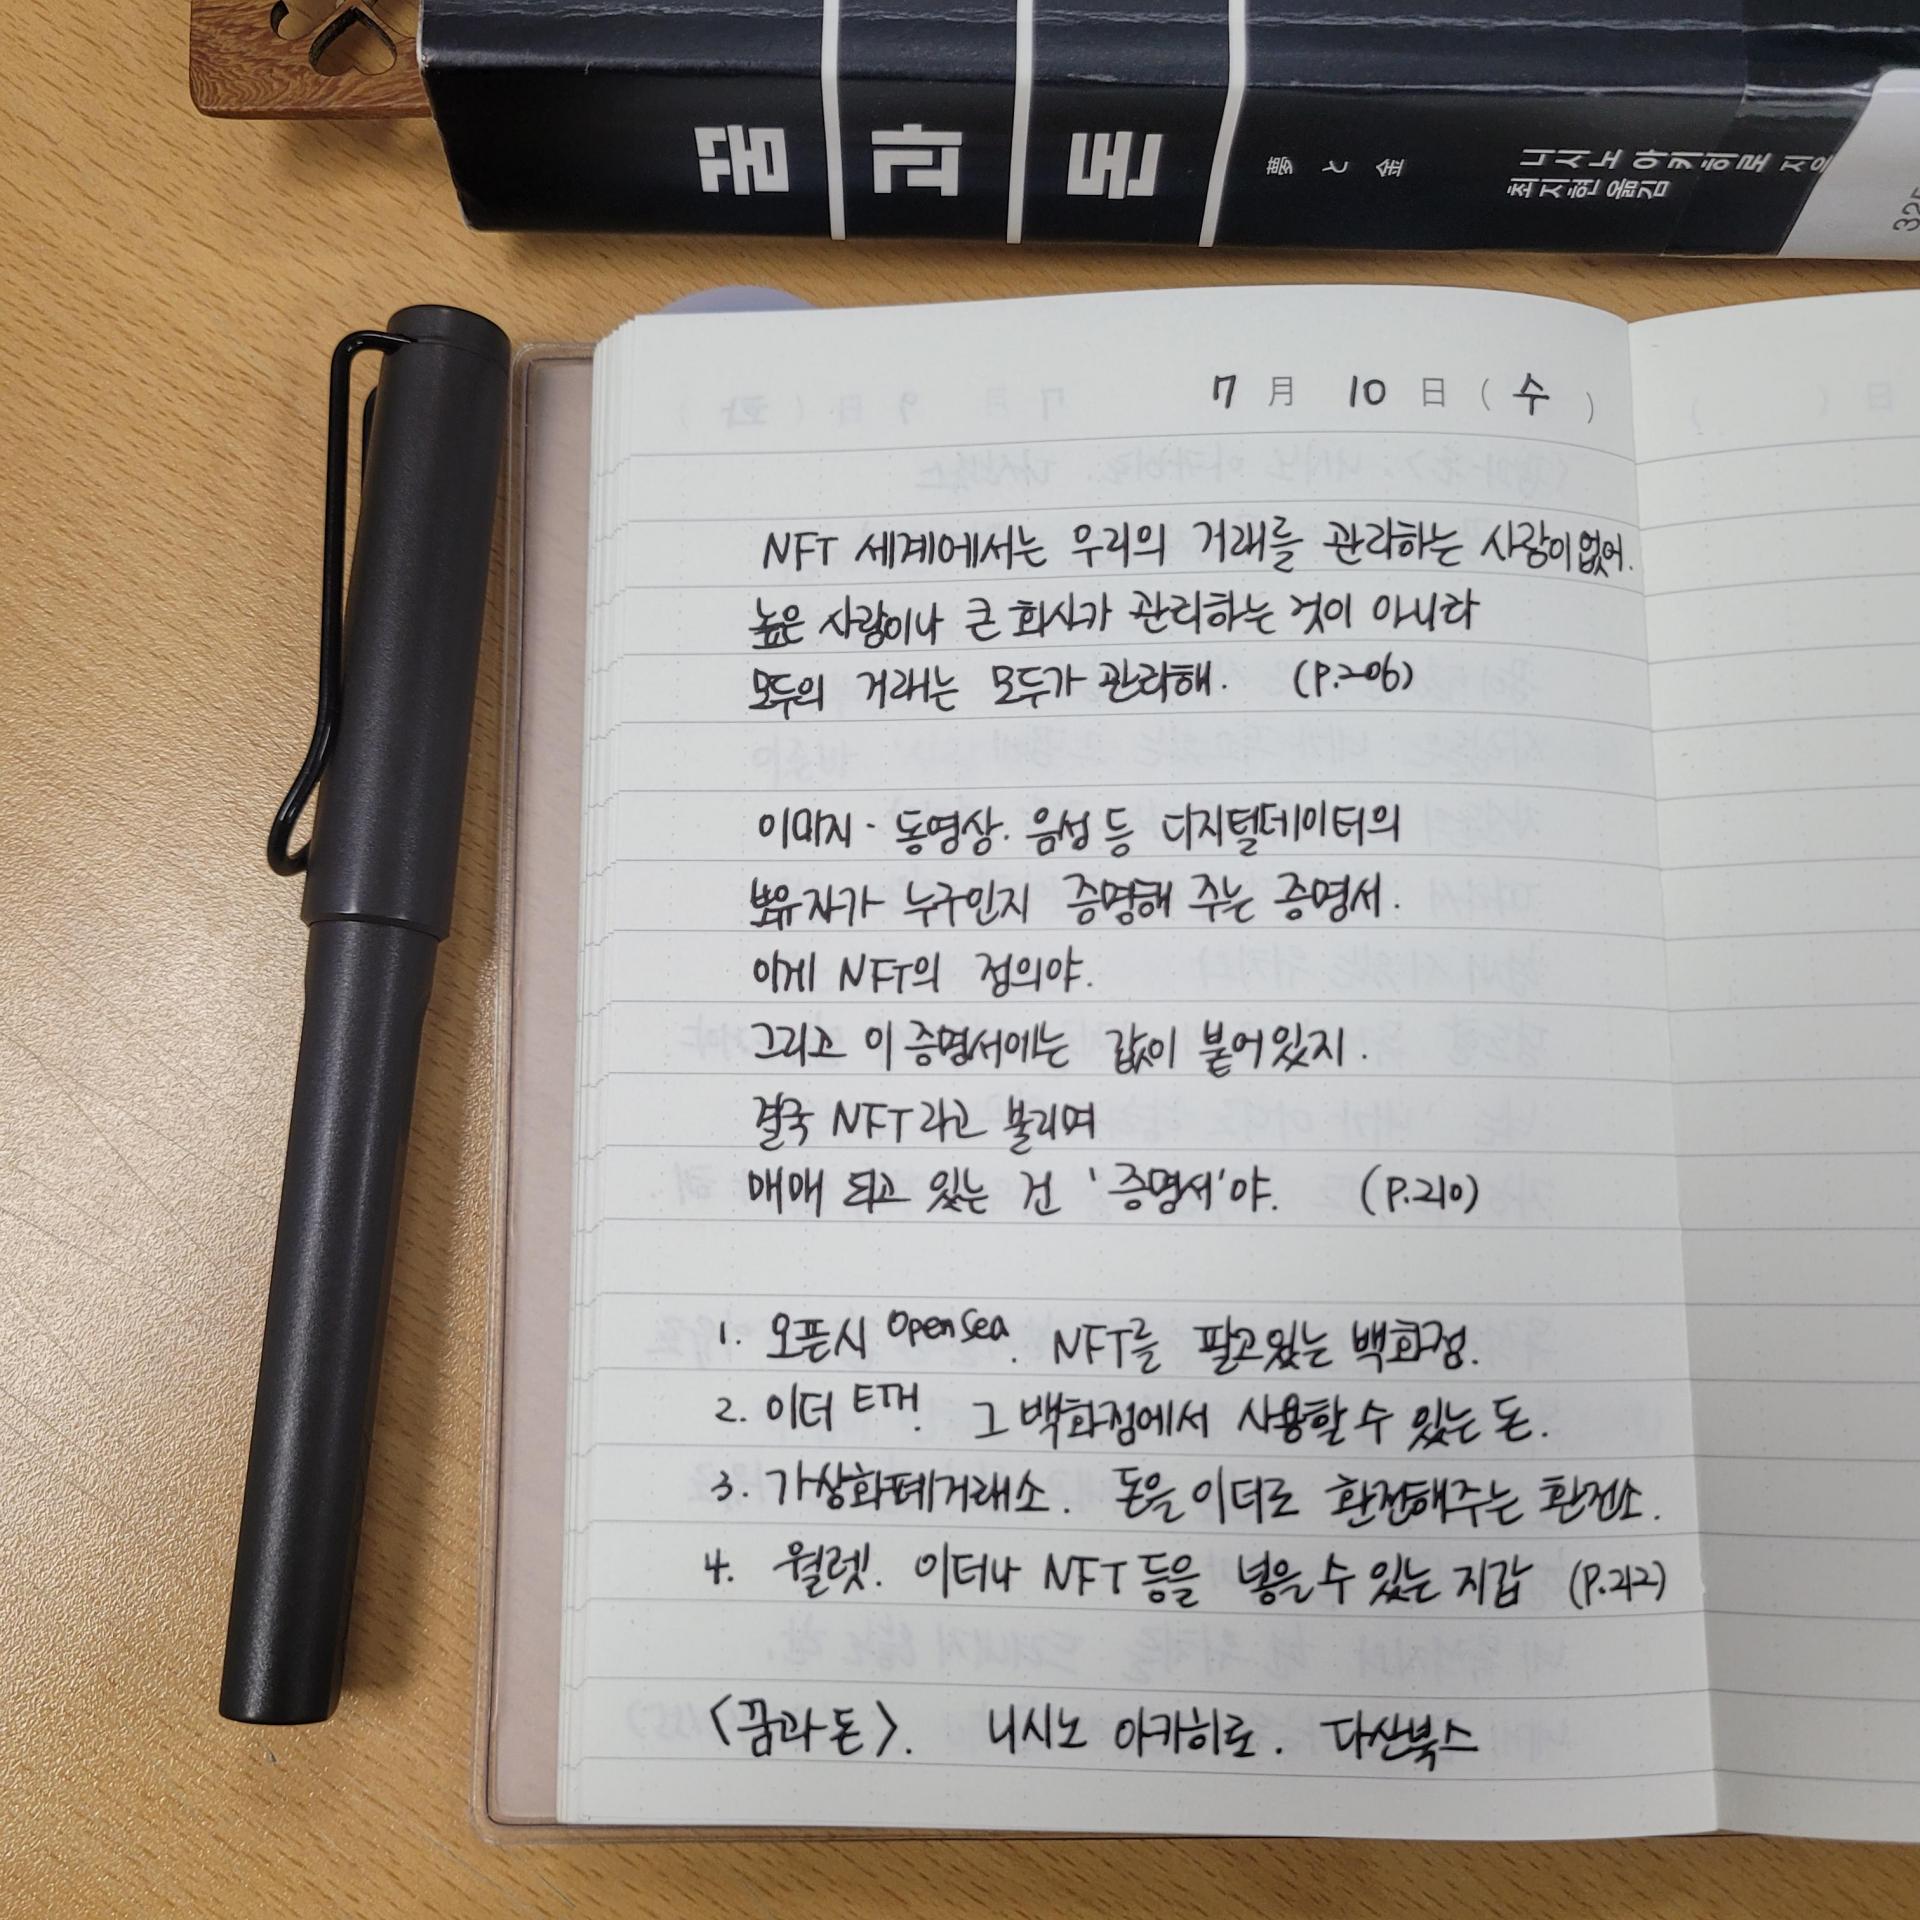 꿈과돈
夢と金
니시노 아키히로 지음
최지현 옮김
7 月 10 日 ( 수 )
NFT 세계에서는 우리의 거래를 관리하는 사람이 없어.
높은 사람이나 큰 회사가 관리하는 것이 아니라
모두의 거래는 모두가 관리해. (P.206)
이미지 · 동영상. 음성 등 디지털데이터의
보유자가 누구인지 증명해 주는 증명서.
이게 NFT의 정의야.
그리고 이 증명서에는 값이 붙어있지.
결국 NFT라고 불리며
매매 되고 있는 건 '증명서'야. (P.210)
1. 오픈시 OpenSea. NFT를 팔고있는 백화점.
2. 이더 ETH. 그 백화점에서 사용할 수 있는 돈.
3. 가상화폐거래소. 돈을 이더로 환전해주는 환전소.
4. 월렛. 이더나 NFT 등을 넣을 수 있는 지갑 (P.212)
<꿈과 돈>. 니시노 아카히로. 다산북스